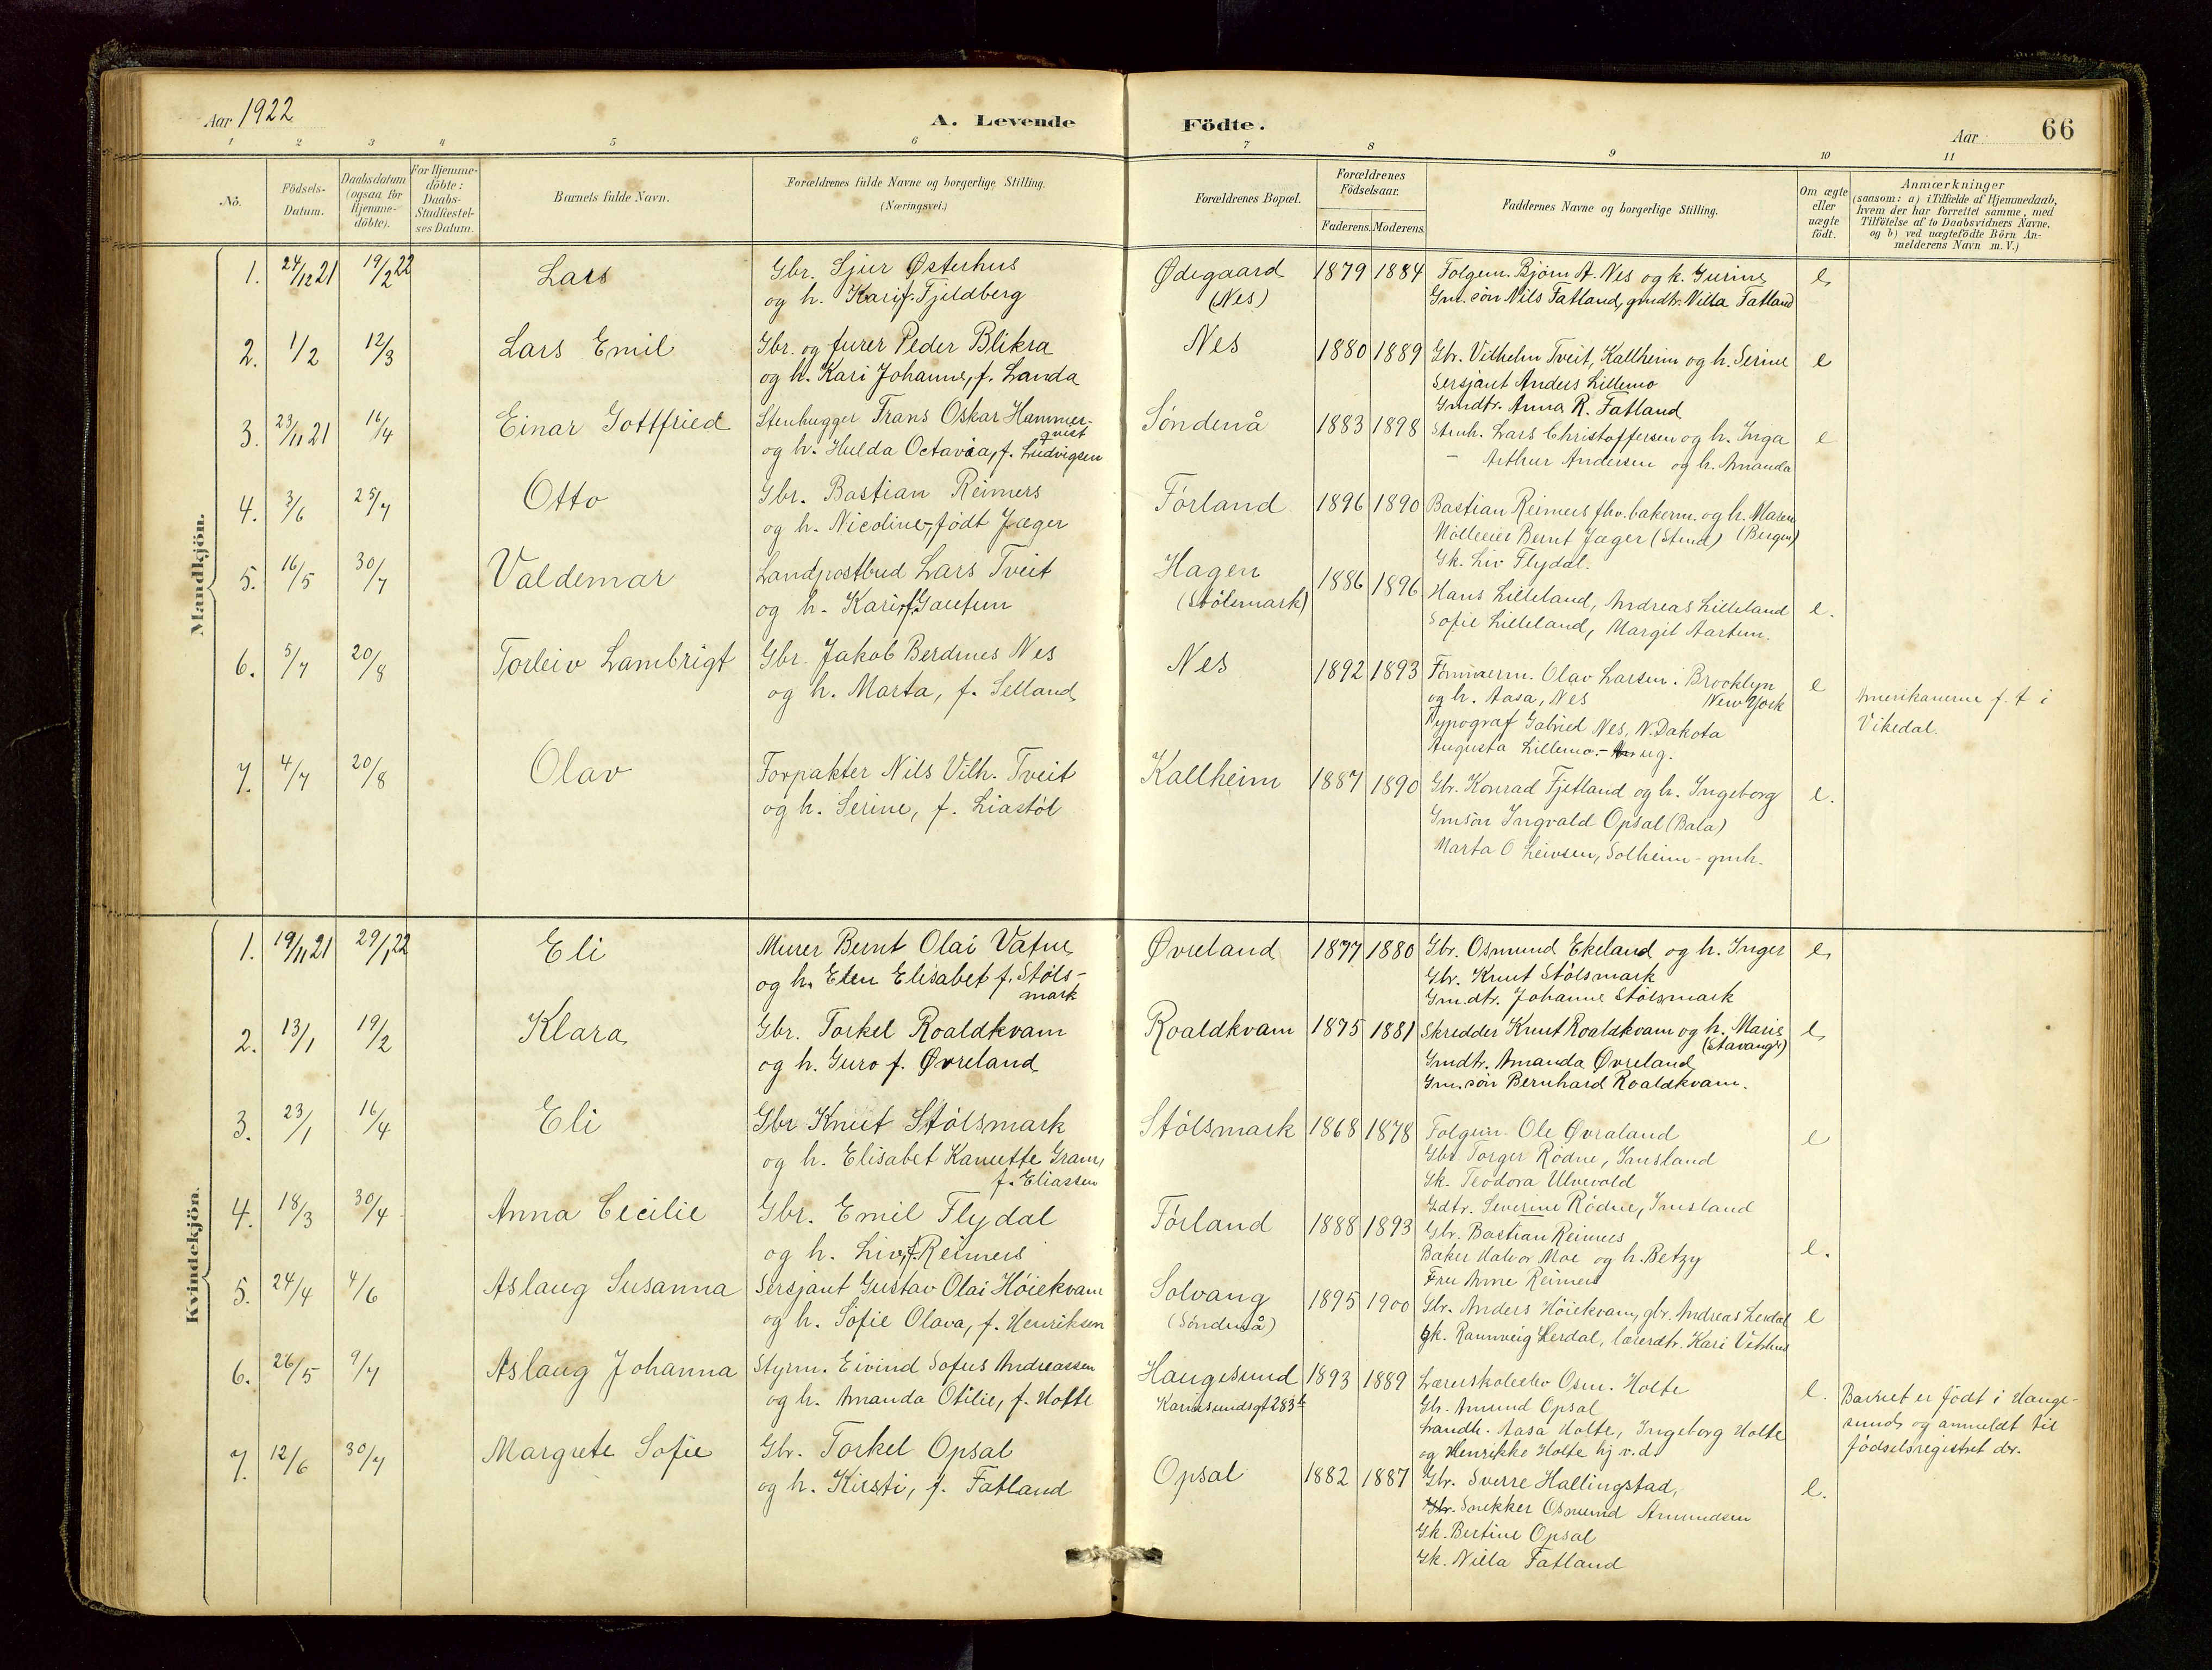 Aar 1922
A. Levende
Födte.
Aar
66
1 2 3 4 5 6 7 8 9 10 11
No.
Födsels-
Datum.
Daabsdatum
(ogsaa for
Hjemme-
döbte).
For Hjemme-
döbte:
Daabs-
Stadfæstel-
ses Datum.
Barnets fulde Navn.
Forældrenes fulde Navne og borgerlige Stilling.
(Næringsvei.)
Forældrenes Bopæl.
Forældrenes
Födselsaar.
Faderens. Moderens.
Faddernes Navne og borgerlige Stilling.
Om ægte
eller
uægte
födt.
Anmærkninger
(saasom: a) i Tilfælde af Hjemmedaab,
hvem der har forrettet samme, med
Tilföielse af to Daabsvidners Navne,
og b) ved uægtefödte Börn An-
melderens Navn m. V.)
Mandkjön.
1. 24/12 21 19/2 22 Lars Gbr. Sjur Østerhus Ødegaard 1879 1884 Folgem. Bjørn A. Nes og k. Gurine e
og h. Kari f. Fjeldberg (Nes) Gm. søn Nils Fatland, gmdtr. Nilla Fatland
2. 1/2 12/3 Lars Emil Gbr. og furer Peder Blikra Nes 1880 1889 Gbr. Vilhelm Tveit, Kallheim og h. Serine e
og h. Kari Johanne, f. Landa Sersjant Anders Lillemo
Gmdtr. Anna R. Fatland
3. 23/11 21 16/4 Einar Gottfried Stenhugger Frans Oskar Hammer- Søndenå 1883 1898 Stenh. Lars Christoffersen og h. Inga e
qvist
og h. Hulda Octavia, f. Ludvigsen – Arthur Andersen og h. Amanda
4. 3/6 25/7 Otto Gbr. Bastian Reimers Førland 1896 1890 Bastian Reimers fhv. bakerm. og h. Maren
og h. Nicoline, født Jæger Mølleeier Bernt Jæger (Stend) (Bergen)
Gk. Liv Flydal.
5. 16/5 30/7 Valdemar Landpostbud Lars Tveit Hagen 1886 1896 Hans Lilleland, Andreas Lilleland e.
og h. Kari, f. Gautun (Stølsmark) Sofie Lilleland, Margit Aartun.
6. 5/7 20/8 Torleiv Lambrigt Gbr. Jakob Berdines Nes Nes 1892 1893 Tømmerm. Olav Larsen. Brooklyn e Amerikanerne f. t i
og h. Marta, f. Selland og h. Aasa, Nes New York Vikedal.
Typograf Gabriel Nes, N. Dakota
Augusta Lillemo. – ug.
7. 4/7 20/8 Olav Forpakter Nils Vilh. Tveit Kallheim 1887 1890 Gbr. Konrad Fjetland og h. Ingeborg e.
og h. Serine, f. Liastøl Gmsøn Ingvald Opsal (Bala)
Marta O Leivsen, Solheim – gmh.
Kvindekjön.
1. 19/11 21 29/1 22 Eli Murer Bernt Olai Vatne Øvreland 1877 1880 Gbr. Osmund Ekeland og h. Inger e
og h. Elen Elisabet f. Støls- Gbr. Knut Stølsmark
mark Gm.dtr. Johanne Stølsmark
2. 13/1 19/2 Klara Gbr. Torkel Roaldkvam Roaldkvam 1875 1881 Skredder Knut Roaldkvam og h. Marie e
(Stavanger)
og h. Guro f. Øvreland Gmdtr. Amanda Øvreland
Gm.søn Bernhard Roaldkvam.
3. 23/1 16/4 Eli Gbr Knut Stølsmark Stølsmark 1868 1878 Folgem. Ole Øvraland e
og h. Elisabet Kanutte Gram, Gbr Torger Rødne, Imsland
f. Eliassen Gk. Teodora Ulvevold
Gdtr. Severine Rødne, Imsland
4. 18/3 30/4 Anna Cecilie Gbr. Emil Flydal Førland 1888 1893 Gbr. Bastian Reimers e.
og h. Liv, f. Reimers Baker Halvor Moe og h. Betzy
Fru Anne Reimers
5. 24/4 4/6 Aslaug Susanna Sersjant Gustav Olai Høiekvam Solvang 1895 1900 Gbr. Anders Høiekvam, gbr. Andreas Lerdal e
og h. Sofie Olava, f. Henriksen (Søndenå) gk. Rannveig Lerdal, lærerdtr. Kari Vethus
6. 26/5 9/7 Aslaug Johanna Styrm. Eivind Sofus Andreassen Haugesund 1893 1889 Lærerskoleelev Osm. Holte e. Barnet er født i Hauge-
og h. Amanda Otilie, f. Holte Karmsundsgt 283 b Gbr. Amund Opsal sund, og anmeldt til
Landh. Aasa Holte, Ingeborg Holte fødselsregistret der.
og Henrikke Holte hj v. d.
7. 12/6 30/7 Margrete Sofie Gbr. Torkel Opsal Opsal 1882 1887 Gbr. Sverre Hallingstad, e.
og h. Kirsti, f. Fatland Gbr. Snekker Osmund Amundsen
Gk. Bertine Opsal
Gk. Nilla Fatland